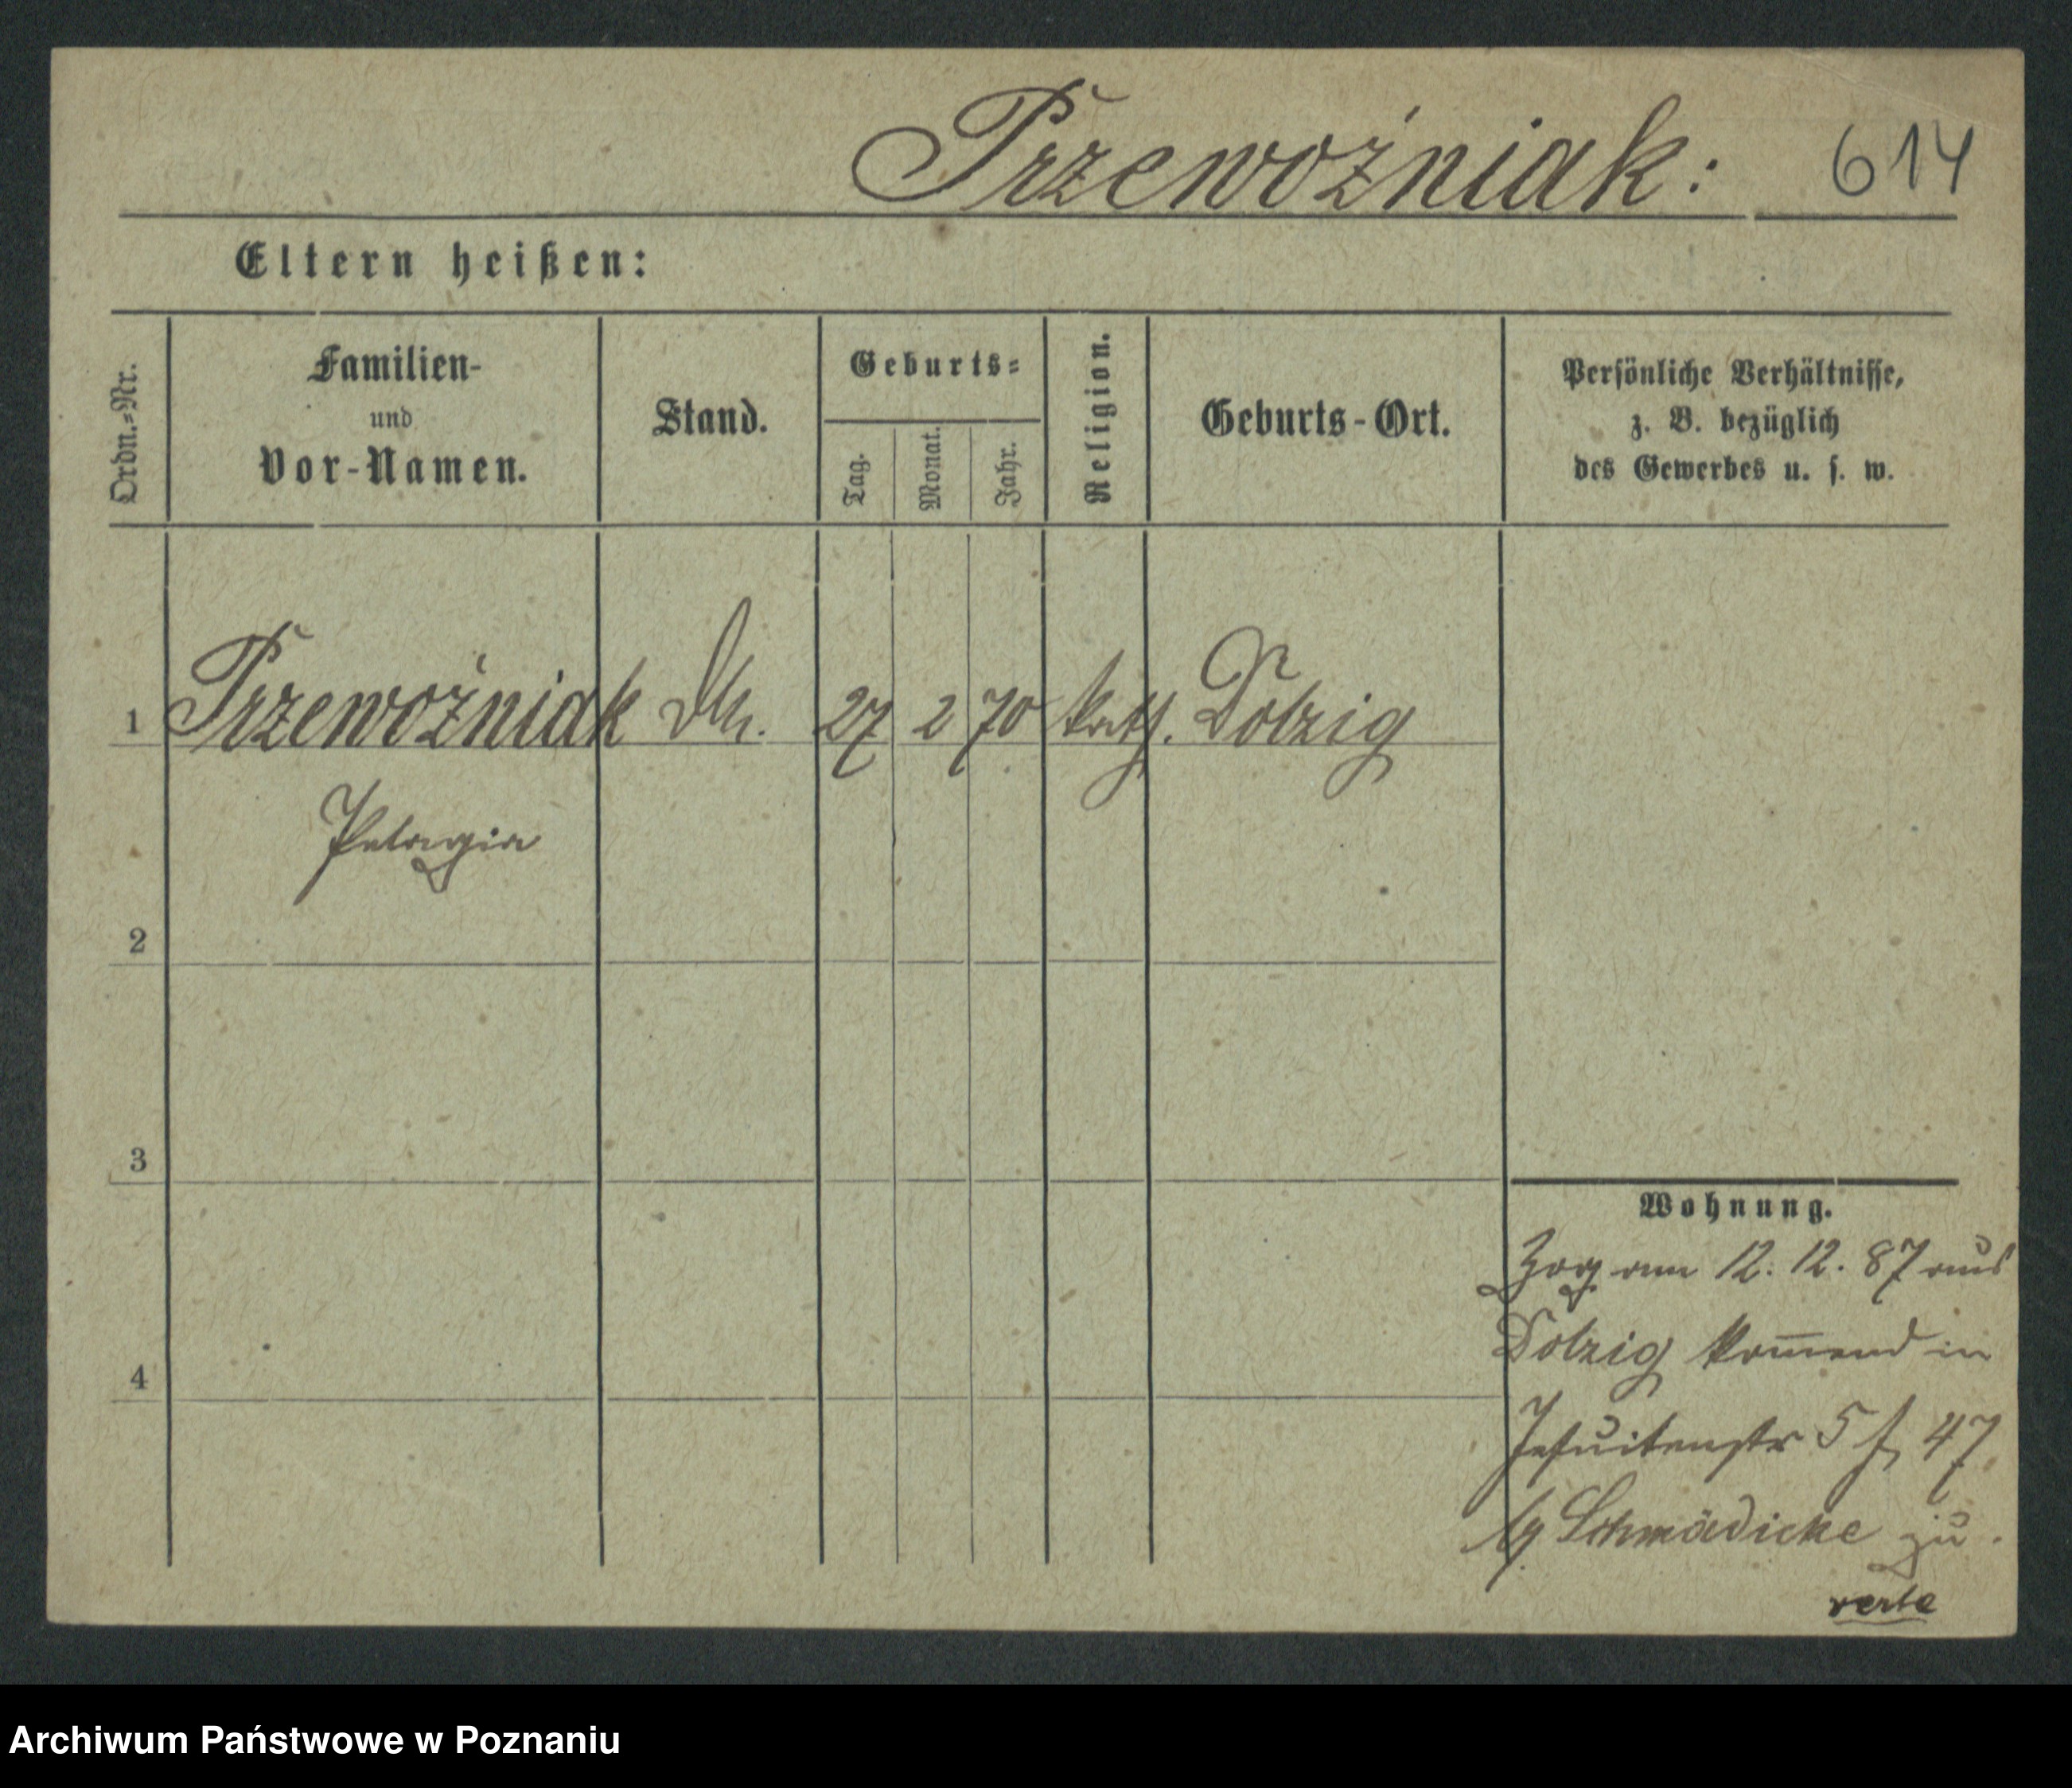 Przewoźniak: 614
Eltern heißen:
Ordn.-Nr.
Familien-
und
Vor-Namen.
Stand.
Geburts-
Tag.
Monat.
Jahr.
Religion.
Geburts-Ort.
Persönliche Verhältnisse,
z. B. bezüglich
des Gewerbes u. s. w.
1 Przewoźniak 27 2 70 kath. Dolzig
Pelagia
2
3
4
Wohnung.
Zog am 12. 12. 87 aus
Dolzig kom̄end in
Jesuitenstr 5 47
Schmädicke zu.
verte
Archiwum Państwowe w Poznaniu